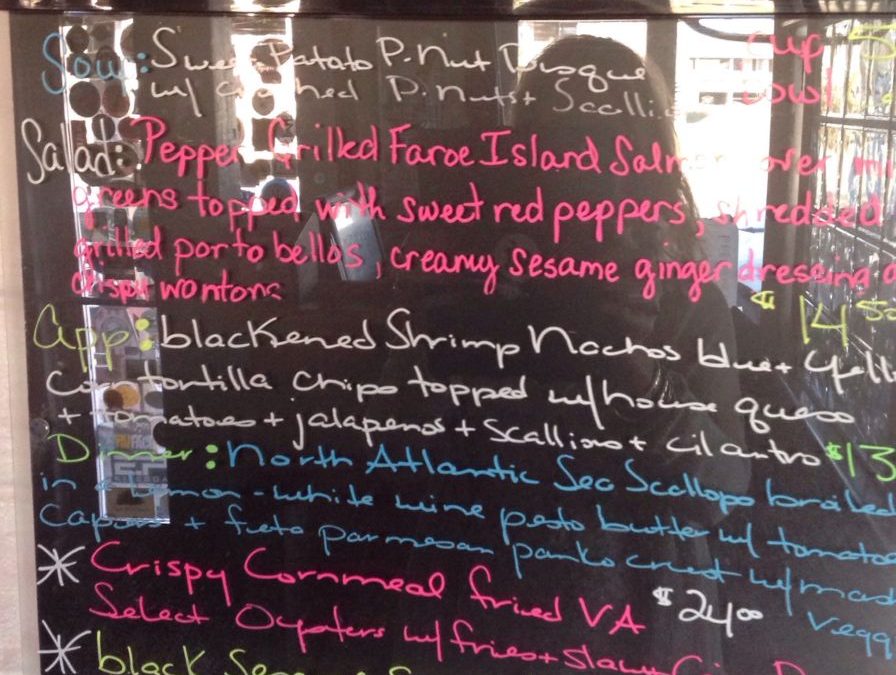 Soup: Sweet Patato P.Nut Bisque cup 5
w/ crushed P.nuts + Scalli bowl
Salad: Pepper Grilled Faroe Island Salmon over mi
greens topped with sweet red peppers, shredded
grilled portobellos, creamy sesame ginger dressing
crispy wontons $14 5
app: blackened Shrimp Nachos blue + yell
corn tortilla chips topped w/ house queso
+ tomatoes + jalapenos + scallions + cilantro $13
Dinner: North Atlantic Sea Scallops broiled
in a lemon-white wine pesto butter w/ tomatoe
capers + feta parmesan panko crust w/ mash
* Crispy Cornmeal fried VA $24 00 Vegg
Select Oysters w/ fries + slaw
* black